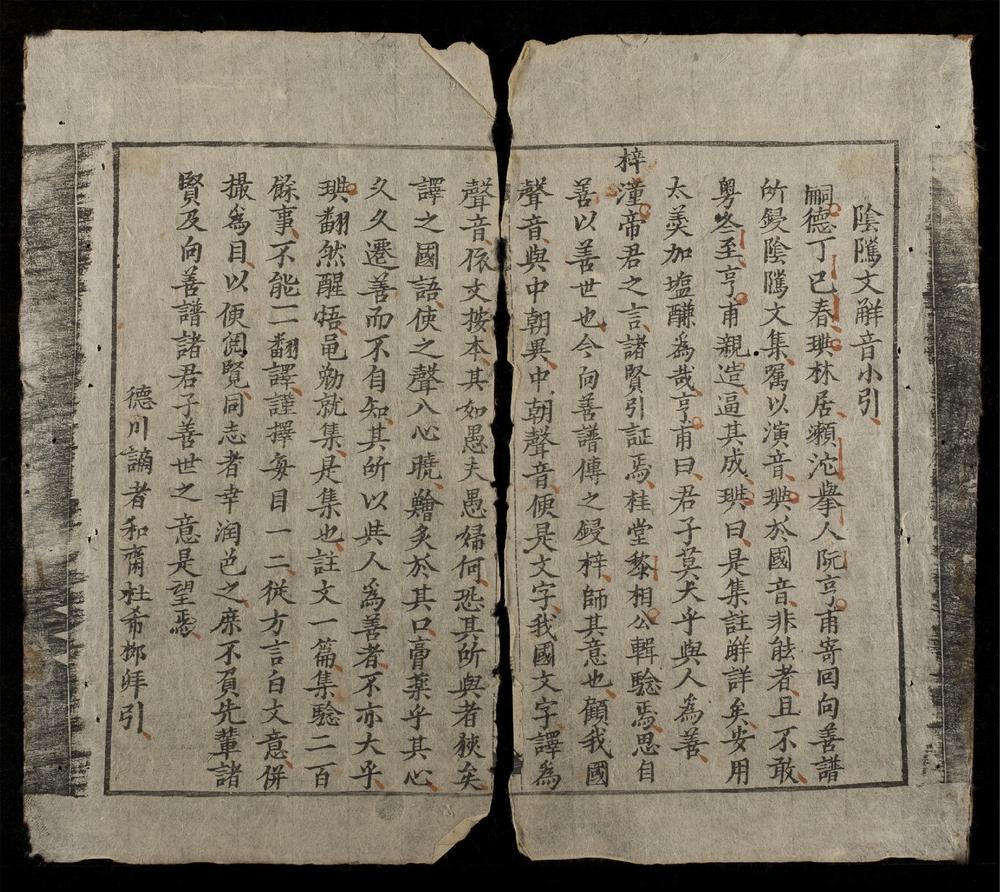 陰騭文解音小引
嗣德丁巳春琠林居瀨沱擧人阮亨甫寄囘向善譜
所鋟陰騭文集嘱以演音琠於國音非能者且不敢
粤冬至亨甫親造逼其成琠曰是集註解詳矣安用
太羮加塩醵爲哉亨甫曰君子莫大乎與人爲善
梓潼帝君之言諸賢引証焉桂堂黎相公輯驗焉思自
善以善世也今向善譜傳之鋟梓師其意也顧我國
聲音與中朝異中朝聲音便是文字我國文字譯爲
聲音依文按本其如愚夫愚婦何恐其所與者狹矣
譯之國語使之聲入心曉鱠炙於其口膏藥乎其心
久久遷善而不自知其所以與人爲善者不亦大乎
琠翻然醒悟黽勉就集是集也註文一篇集驗二百
餘事不能一一翻譯謹擇每目一二從方言白文意併
撮爲目以便閲覽同志者幸润色之庶不負先輩諸
賢及向善譜諸君子善世之意是望焉
德川謫者和齋杜希 拜引